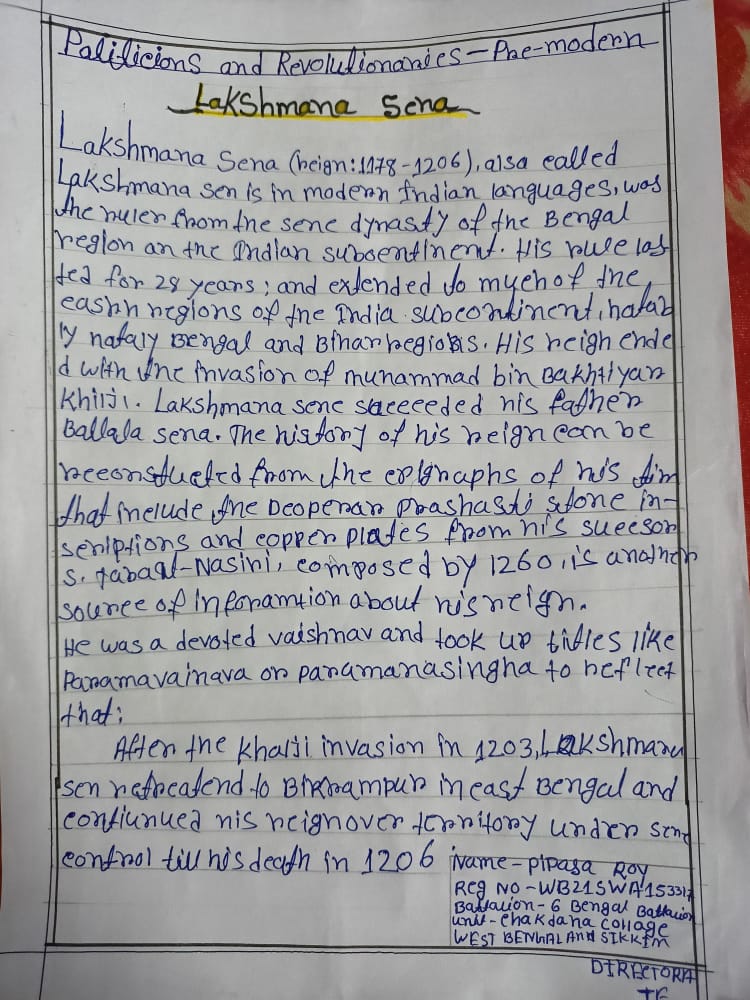 Palificions and Revolutionaries - Pre-modern
Lakshmana Sena
Lakshmana Sena (reign: 1178-1206), alsa called
Lakshmana sen is in modern Indian languages, was
the ruler from the sene dynasty of the Bengal
region an the Indian subsentinent. His rule las
ted for 28 years; and extended to myeh of the
easnn regions of the India subcontinent, natab
ly nataly Bengal and Binar regions. His reigh ende
d with the invasion of munammad bin Bakhtiyar
Khilji. Lakshmana sene saeceeded his father
Ballala sena. The history of his reign can be
reconstucted from the epigraphs of his tim
that include the Deopenar prashasti stone in-
seriptions and copper plates from his sueeson
s. tabaqat-Nasiri, composed by 1260, is anather
source of inforamtion about his reign.
He was a devoted vaishnav and took up titles like
Paramavainava or paramanasingha to refleet
that:
After the khalji invasion in 1203, Lakshmana
sen retreatend to Bikrampur in east Bengal and
contiunued his reign over territory under sene
control till his death in 1206
Name - pipasa Roy
Reg NO - WB21SWA153317
Battalion - 6 Bengal Battalion
unit - Chakdana collage
WEST BENGAL AND SIKKIM
DIRECTORA
TE